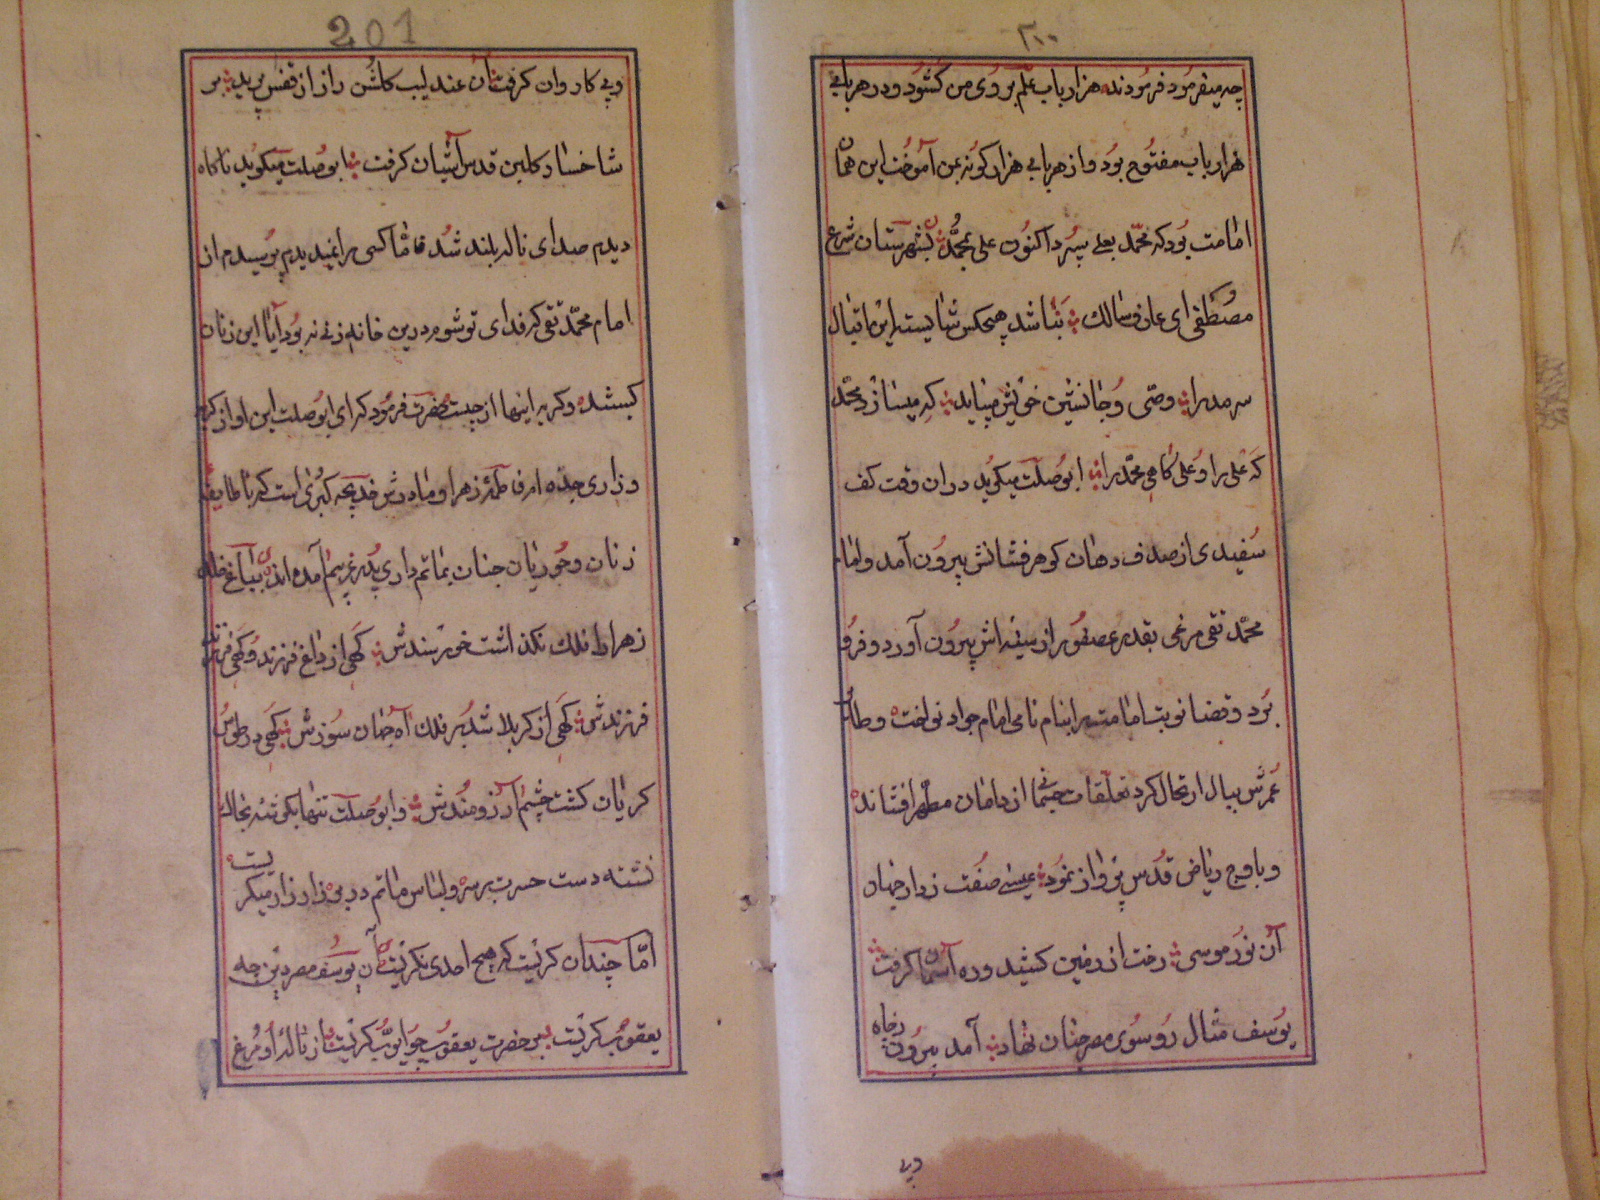 ۲۰۰
چه میفرمود فرمودند هزار باب علم بروی من کشود و در هر بابی
هزار باب مفتوح بود و از هر بابی هزار کونه بمن آموخت این همان
امامت بود که محمد بعلی سپرد اکنون علی بمحمد بشهرستان شرع
مصطفی ای عارف سالک نباشد هیچکس شایسته این اقبال
سرمد را وصی و جانشین خویش میباید که میسازد محمد
که علی را و علی کاهی محمد را ابوصلت میکوید در ان وقت کف
سفیدی از صدف دهان کوهر فشانش بیرون آمد و امام
محمد تقی مرغی بقدر عصفور از سینه اش بیرون آورد و فرو
برد و قضا نوبت امامت را بنام نامی امام جواد نواخت و طائر
عمرش ببال ارتحال کرد تعلقات از دامان مطهر افشانده
و باوج ریاض قدس پرواز نمود عیسی صفت ز دار جهان
آن نور موسی رخت از زمین کشید و ره آسمان کرفت
یوسف مثال رو سوی مصر جنان نهاد آمد برون ز چاه
وپی
201
و پی کاروان کرفت آن عندلیب کلشن راز از قفس پرید بر
شاخسار کلبن قدس آشیان کرفت ابوصلت میکوید ناکاه
دیدم صدای ناله بلند شد اما کسی را نمیدیدم پرسیدم از
امام محمد تقی که فدای تو شوم درین خانه زنی نه بود آیا این زنان
کیستند و کریه اینها از چیست حضرت فرمود که ای ابوصلت این اواز کریه
و زاری جده ام فاطمه زهرا و مادرش خدیجه کبری است که با طایفه
زنان و حوریان جنان بماتم داری پدر غریبم آمده اند بباغ خلد
زهرا را فلک نکذاشت خورسندش کهی از داغ فرزند و کهی فرزند
فرزندش کهی از کربلا شد بر فلک آه جهان سوزش کهی در طوس
کریان کشت چشم آرزومندش و ابوصلت تنها یکی تنه بخاک
نشسته دست حسرت بر سر و لباس ماتم در بر زار زار میکریست
امّا چندان کریست که هیچ احدی نکریست آن یوسف مصر دین چه
یعقوب کریست بر حضرت یعقوب چو ایوب کریست از ناله او مرغ